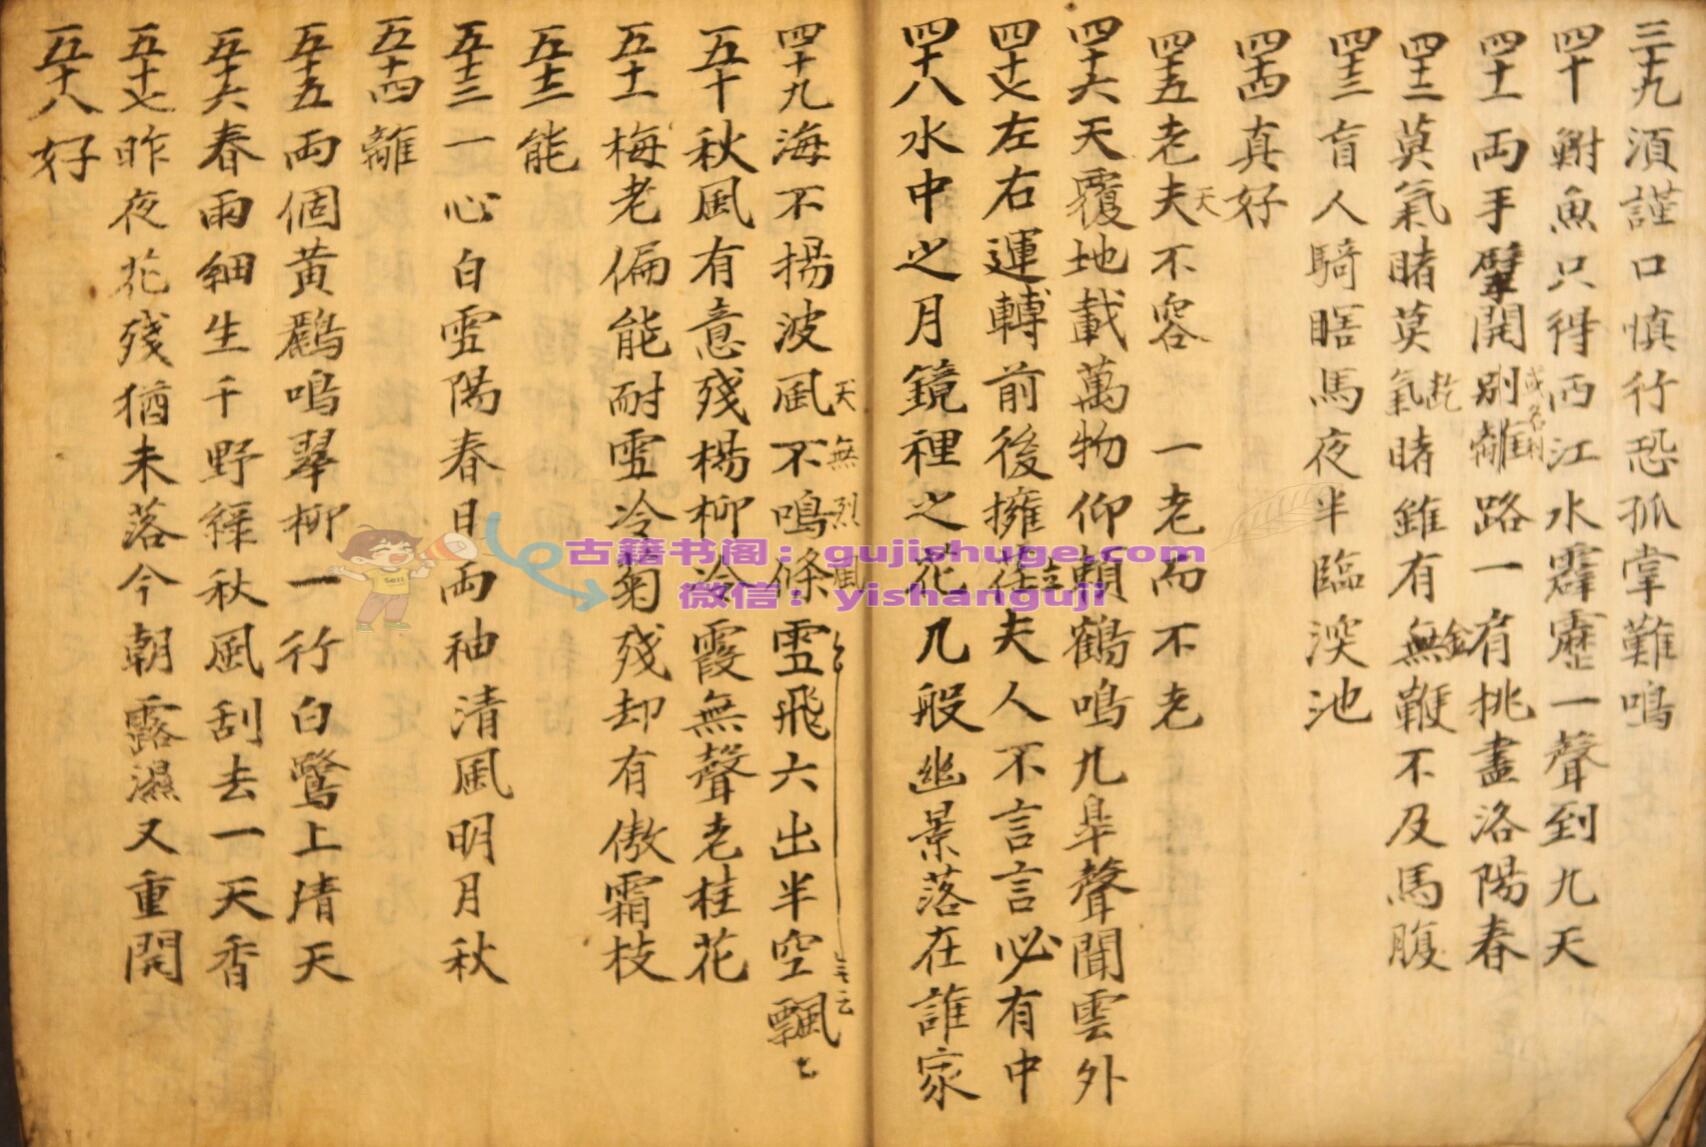 三十九須謹口慎行恐孤掌難鳴
四十鮒魚只得西江水霹靂一聲到九天
或名利
四十一両手擘開別離路一有挑盡洛陽春
四十二莫氣睹莫氣睹錐有無鞭不及馬腹
四十三盲人騎瞎馬夜半臨深池
四十四真好
天
四十五老夫不容一老而不老
四十六天覆地載萬物仰賴鶴鳴九皐聲聞雲外
四十七左右運轉前後擁莊夫人不言言必有中
立
四十八水中之月鏡裡之花几般幽景落在誰家
四十九海不揚波風不鳴條雪飛六出半空飄
天無烈風
五十秋風有意殘楊柳冷霞無聲老桂花
五十一梅老偏能耐雪冷菊殘却有傲霜枝
五十二能
五十三一心白雪陽春日両袖清風明月秋
五十四離
五十五両個黃鸝鳴翠柳一行白鷺上清天
五十六春雨細生千野綠秋風刮去一天香
五十七昨夜花殘猶未落今朝露濕又重開
五十八好
古籍书阁：gujishuge.com
微信：yishanguji